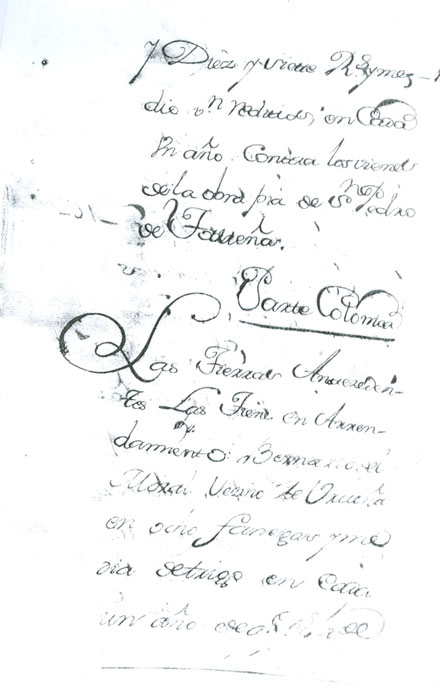 y Diez y nueve Rs. y meq
dio vn reducido, en Cada
Un año. Contra los vienes
de la obra pia de Sn Pedro
de Fauueña.
Parte Colonica
Las Tierras Antezeden-
tes Las Tiene en Arren-
damiento Bernardo el
Moral Vezino de Vrueña
en ocho fanegas y me
dia de trigo en Cada
un año